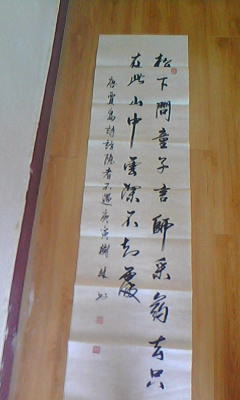 松下問童子言師采药去只
在此山中雲深不知處
唐賈島詩訪隱者不遇庚寅